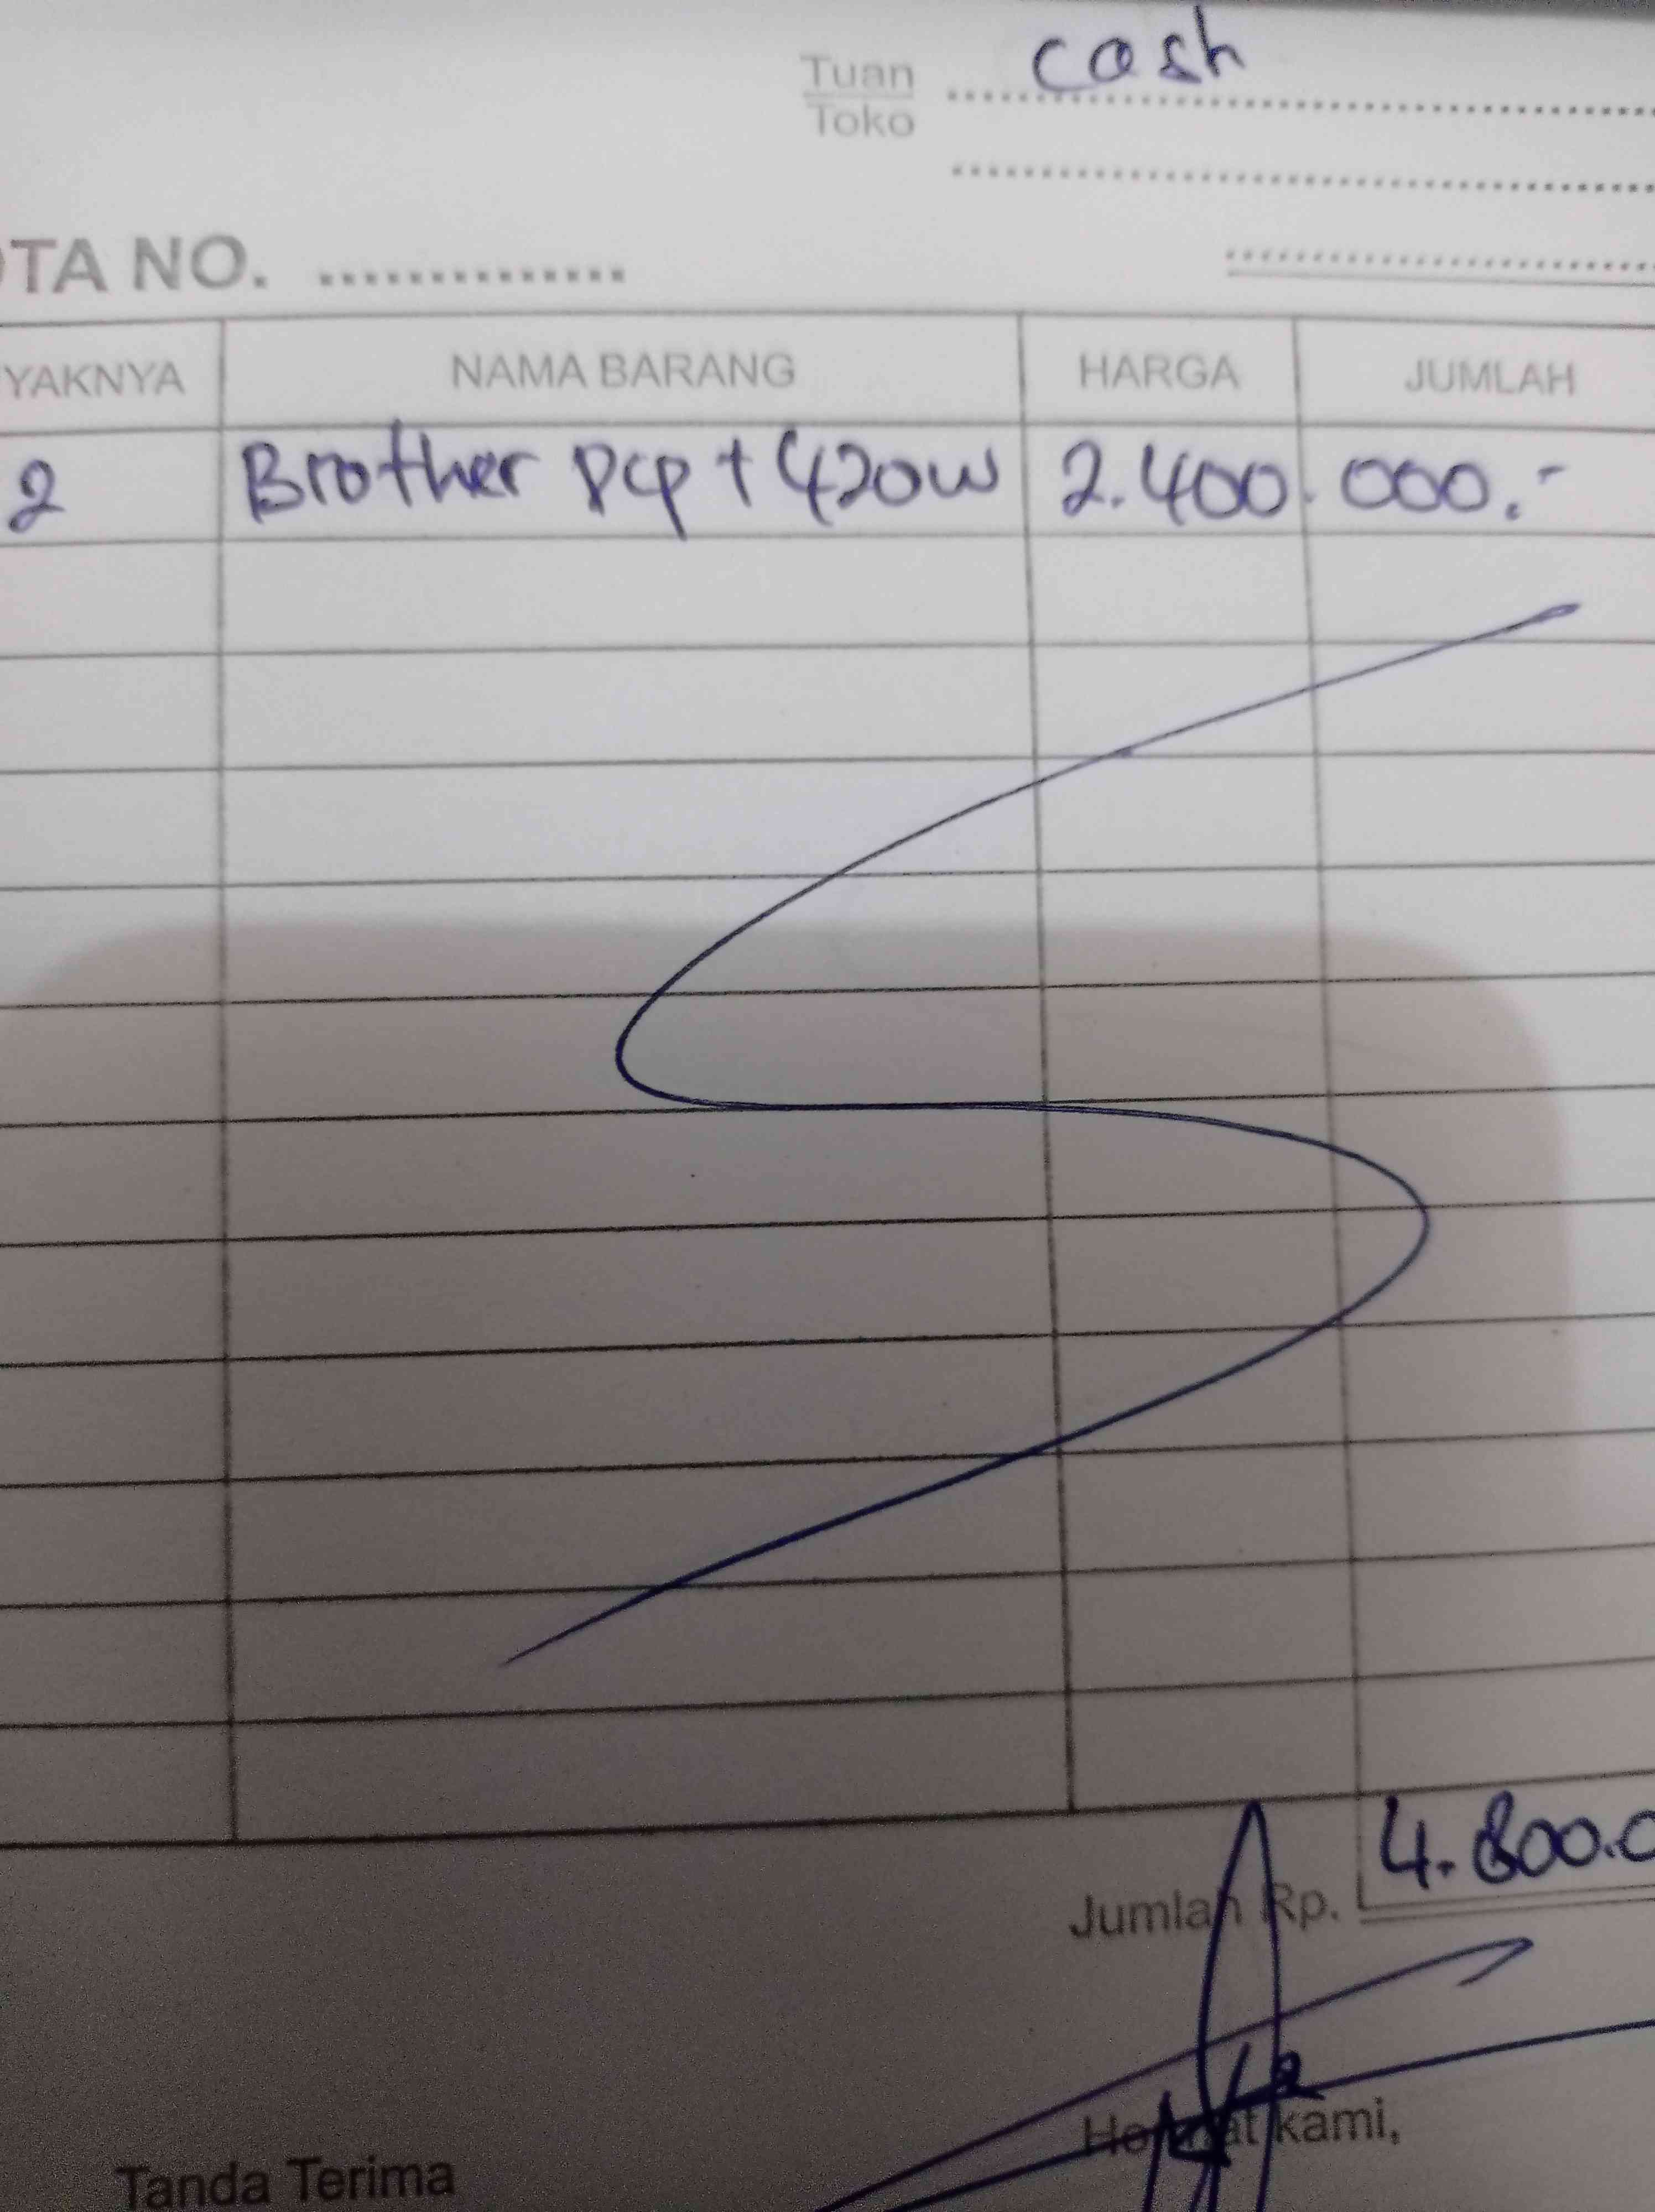 Tuan cash
Toko
OTA NO.
YAKNYA NAMA BARANG HARGA JUMLAH
2 Brother Dcp t 420w 2.400.000.-
Jumlah Rp. 4.800.0
Hormat kami,
Tanda Terima